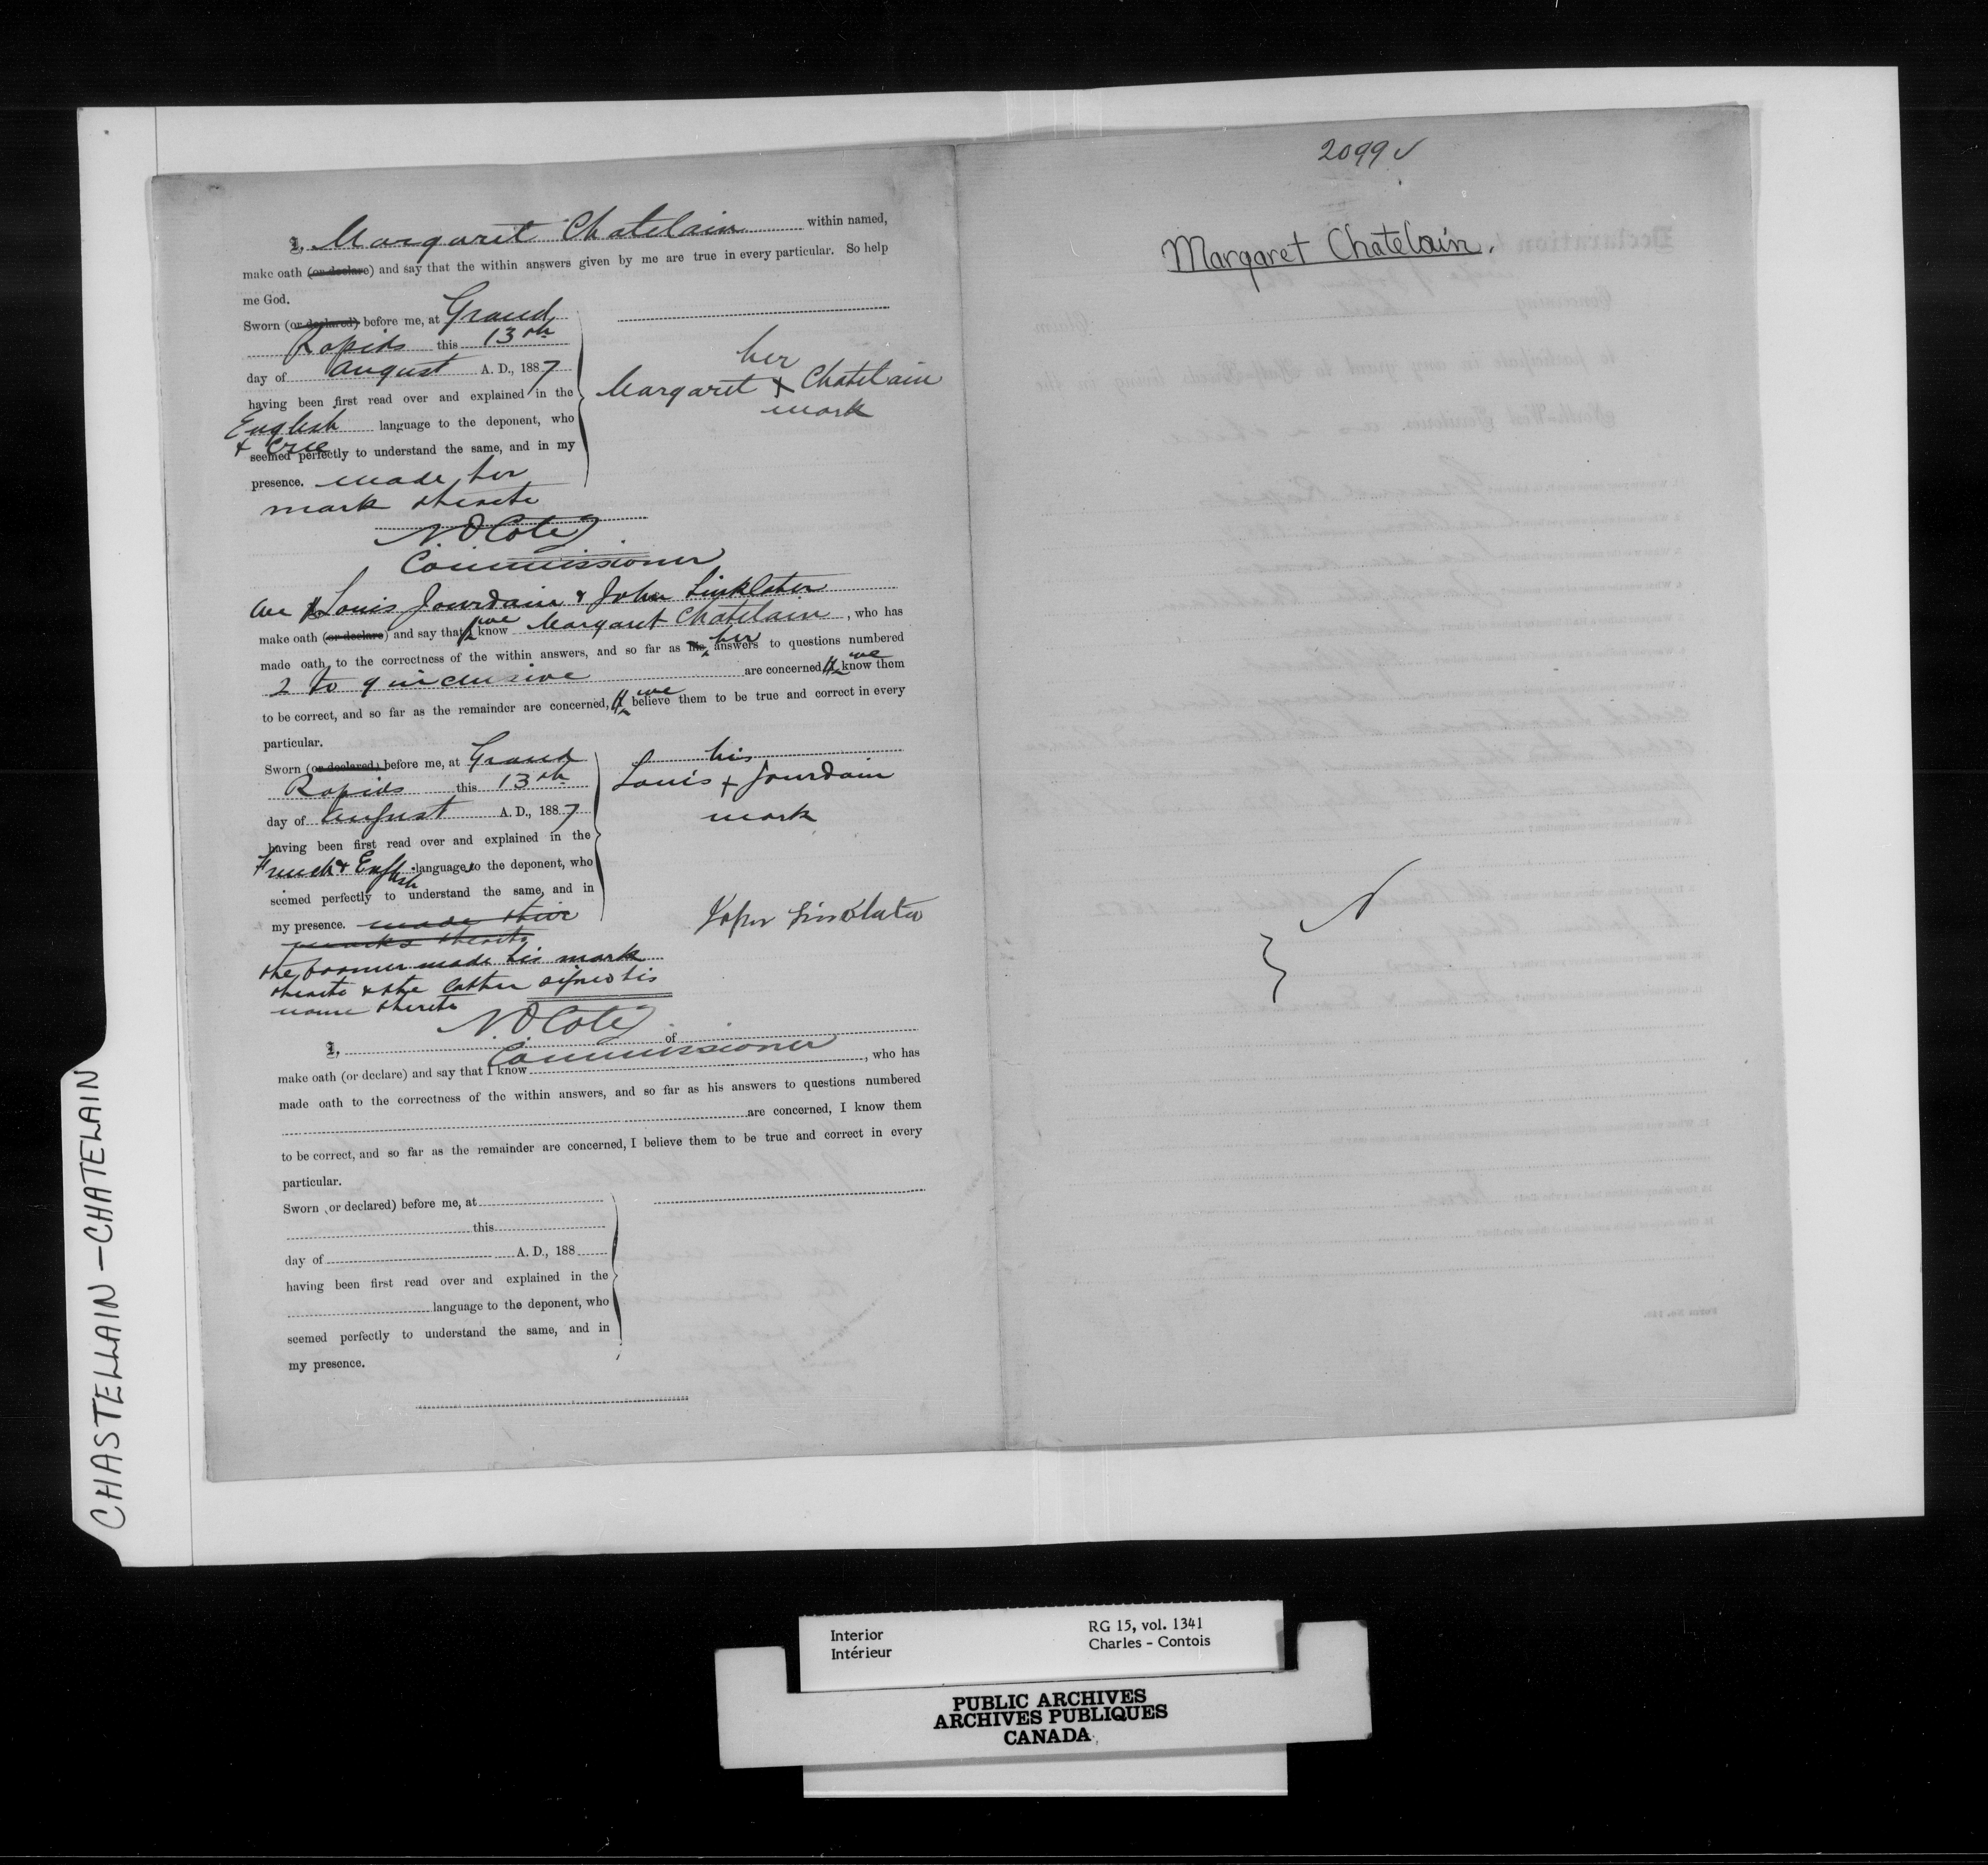 I, Margaret Chatelain within named,
make oath (or declare) and say that the within answers given by me are true in every particular. So help
me God.
Sworn (or declared) before me, at Grand
Rapids this 13th
day of August A. D., 1887
having been first read over and explained in the
English language to the deponent, who
& Cree
seemed perfectly to understand the same, and in my
presence. made her
mark thereto
her
Margaret + Chatelain
mark
N O Coté
Commissioner
We Louis Jourdain & John Linklater
make oath (or declare) and say that I we know Margaret Chatelain, who has
made oath to the correctness of the within answers, and so far as his her answers to questions numbered
2 to 9 inclusive are concerned, I we know them
to be correct, and so far as the remainder are concerned, I we believe them to be true and correct in every
particular.
Sworn (or declared) before me, at Grand
Rapids this 13th
day of August A. D., 1887
having been first read over and explained in the
French & English language to the deponent, who
seemed perfectly to understand the same, and in
my presence. made their
marks thereto
the former made his mark
thereto & the latter signed his
name thereto
his
Louis + Jourdain
mark
John Linklater
N O Coté
Commissioner
I, of
, who has
make oath (or declare) and say that I know
made oath to the correctness of the within answers, and so far as his answers to questions numbered
are concerned, I know them
to be correct, and so far as the remainder are concerned, I believe them to be true and correct in every
particular.
Sworn (or declared) before me, at
this
day of A. D., 188
having been first read over and explained in the
language to the deponent, who
seemed perfectly to understand the same, and in
my presence.
2099 ✓
Margaret Chatelain.
CHASTELLAIN – CHATELAIN
Interior
Intérieur
RG 15, vol. 1341
Charles - Contois
PUBLIC ARCHIVES
ARCHIVES PUBLIQUES
CANADA